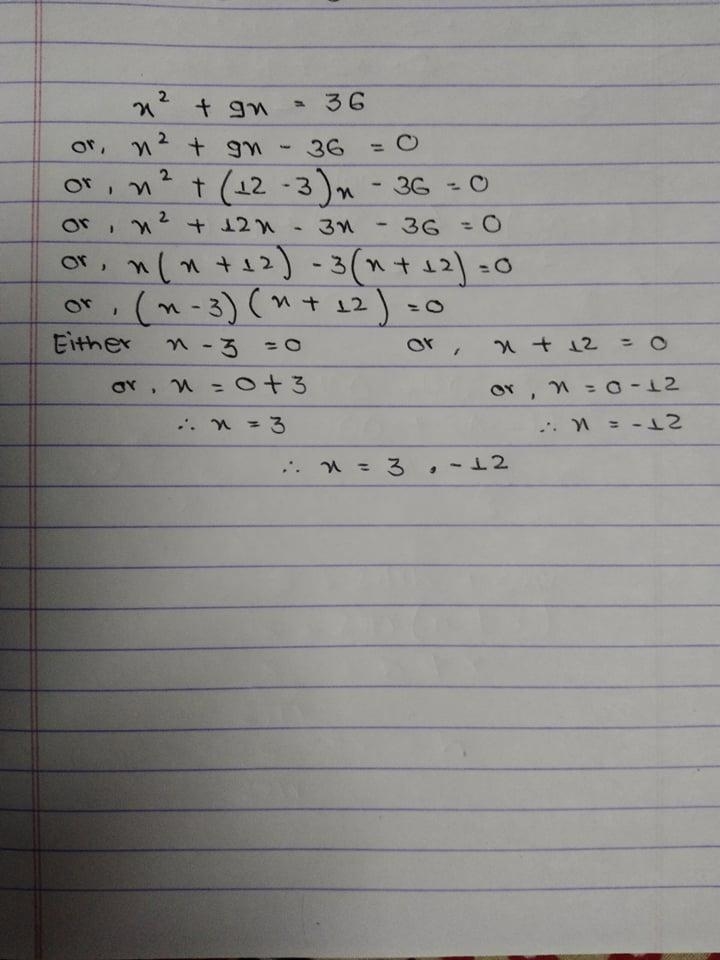 x² + 9x = 36
or, x² + 9x - 36 = 0
or, x² + (12 - 3)x - 36 = 0
or, x² + 12x - 3x - 36 = 0
or, x(x + 12) - 3(x + 12) = 0
or, (x - 3)(x + 12) = 0
Either x - 3 = 0 or, x + 12 = 0
or, x = 0 + 3 or, x = 0 - 12
∴ x = 3 ∴ x = -12
∴ x = 3, -12